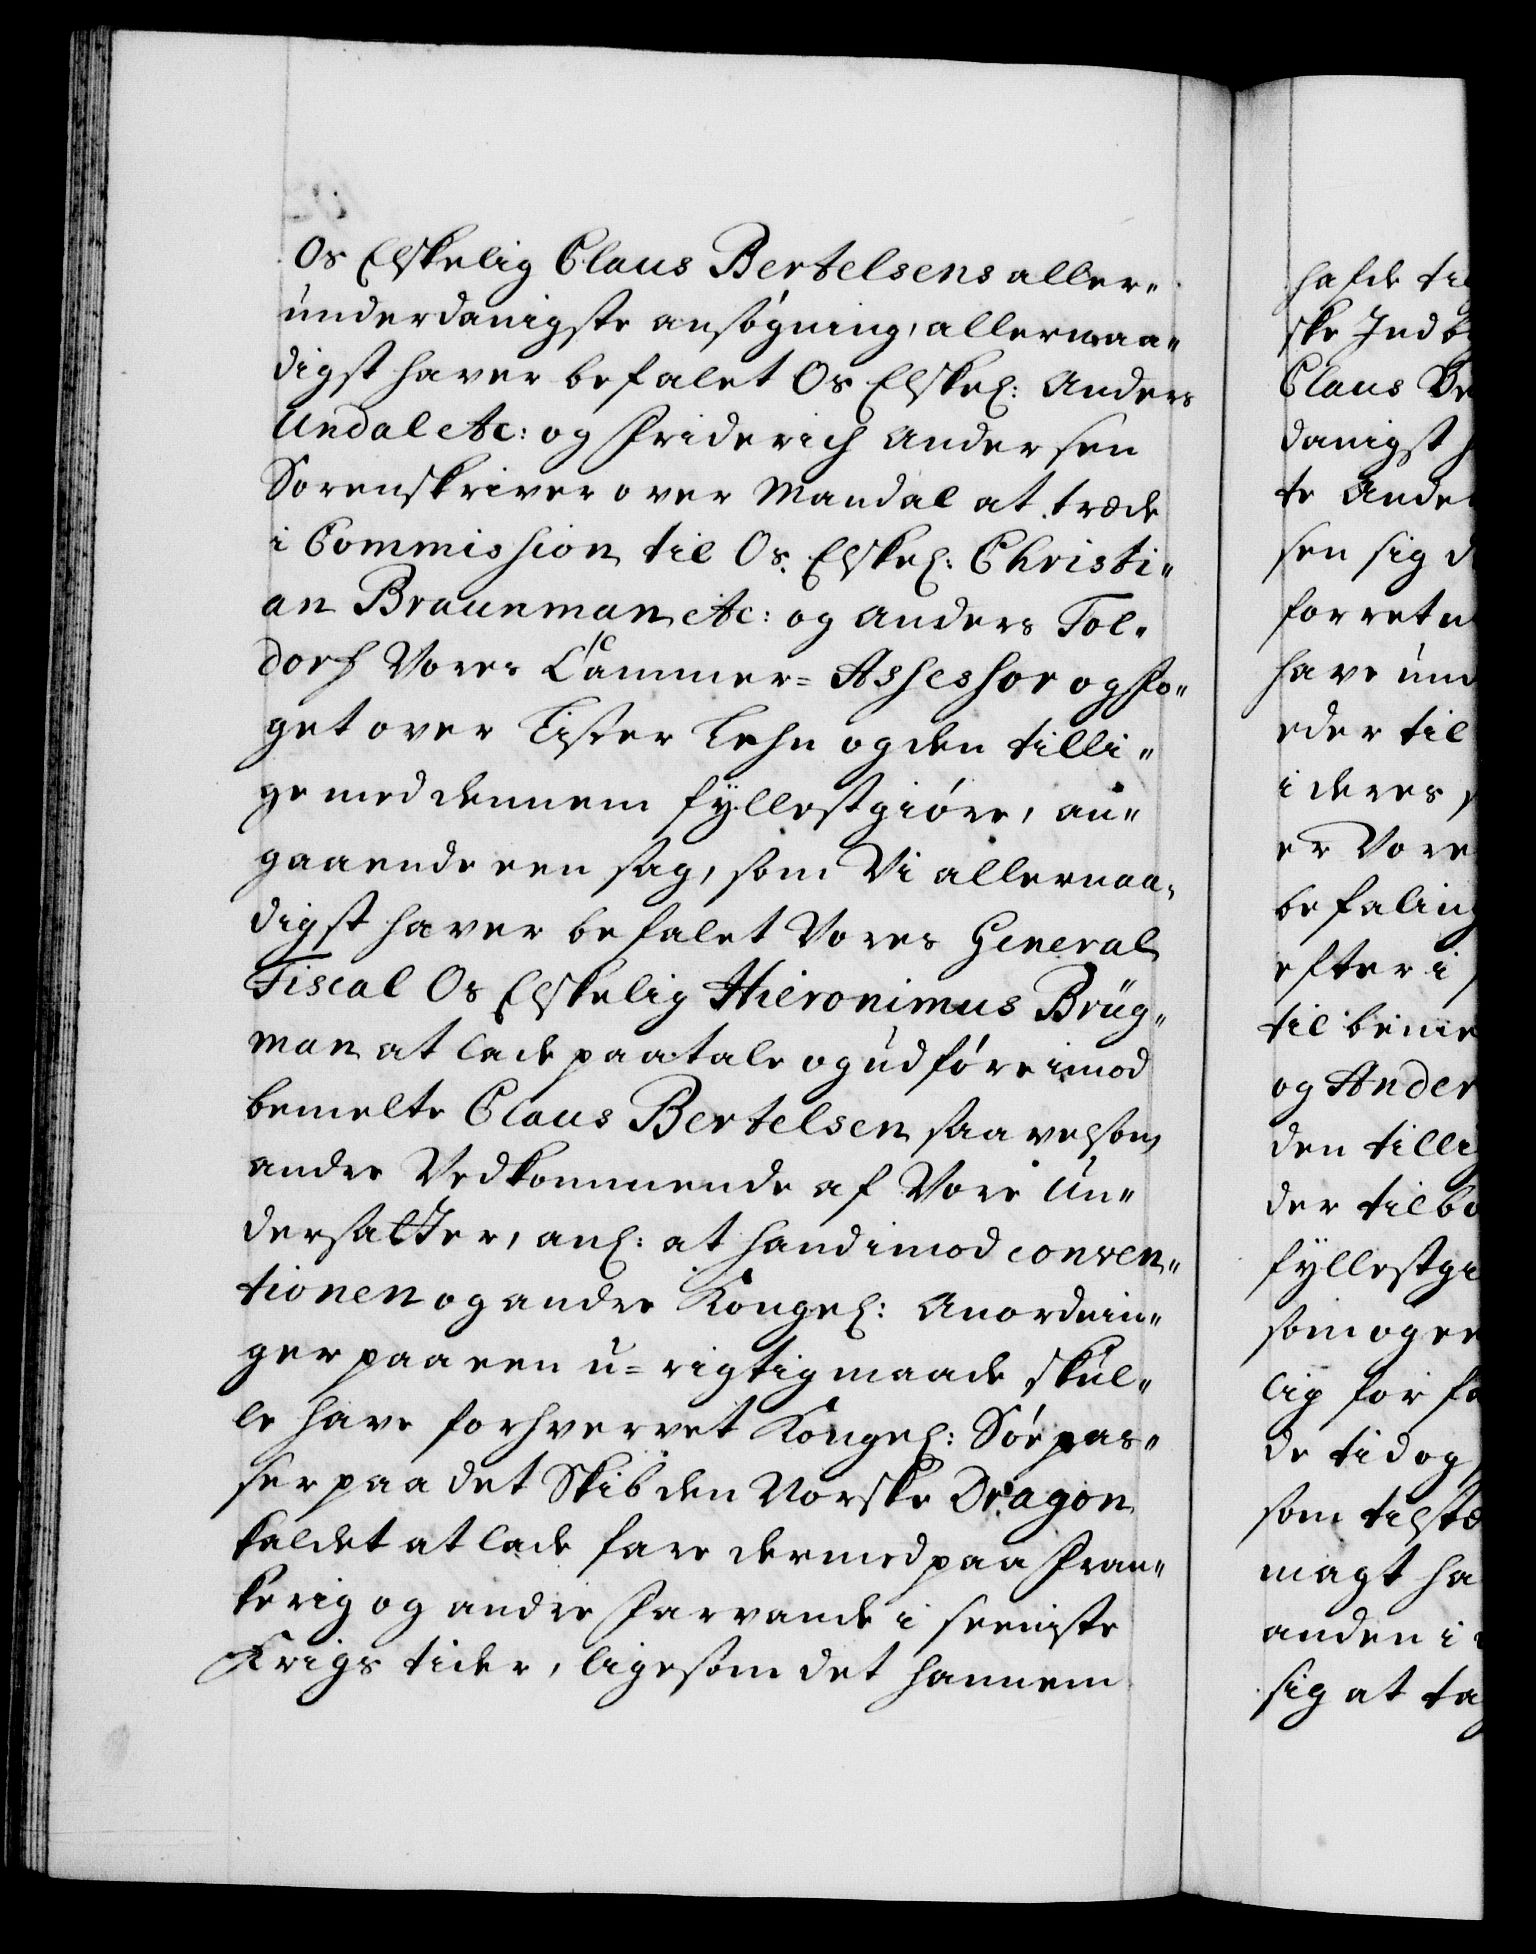 Os Elskelig Claus Bertelsens aller„
underdanigste ansøgning, allernaa„
digst haver befalet Os Elskel: Anders
Undal &c: og Friderich Andersen
Sorenskriver over Mandal at træde
i Commission til Os Elskel: Christi„
an Braunman &c: og Anders Tol„
dorf Vores Cammer= Assessor og fo„
get over Lister Lehn og den tilli„
ge med dennem fyllestgiøre, an„
gaaende een sag, som Vi allernaa„
digst haver befalet Vores General
Fiscal Os Elskelig Hieronimus Brüg„
man at lade paatale og udføre imod
bemelte Claus Bertelsen saavelsom
andre Vedkommende af Vore Un„
dersatter, anl: at hand imod conven„
tionen og andre Kongel: Anordnin„
ger paa een u=rigtig maade skul„
le have forhvervet Kongel: Søepas„
ser paa det Skib den Norske Dragon
kaldet at lade fare dermed paa Fran„
kerig og andre Farvande i seeniste
Krigs tider, ligesom det hannem
hafde til
ske Indb
Claus Be
danigst h
te Ander
sen sig d
forretn
have und
eder til
i deres
er Vore
befaling
efter i
til beme
og Ander
den tillig
der tilbø
fyllestgi
som og ee
lig for fa
de tid og
som tilstæ
magt ha
anden i
sig at tag